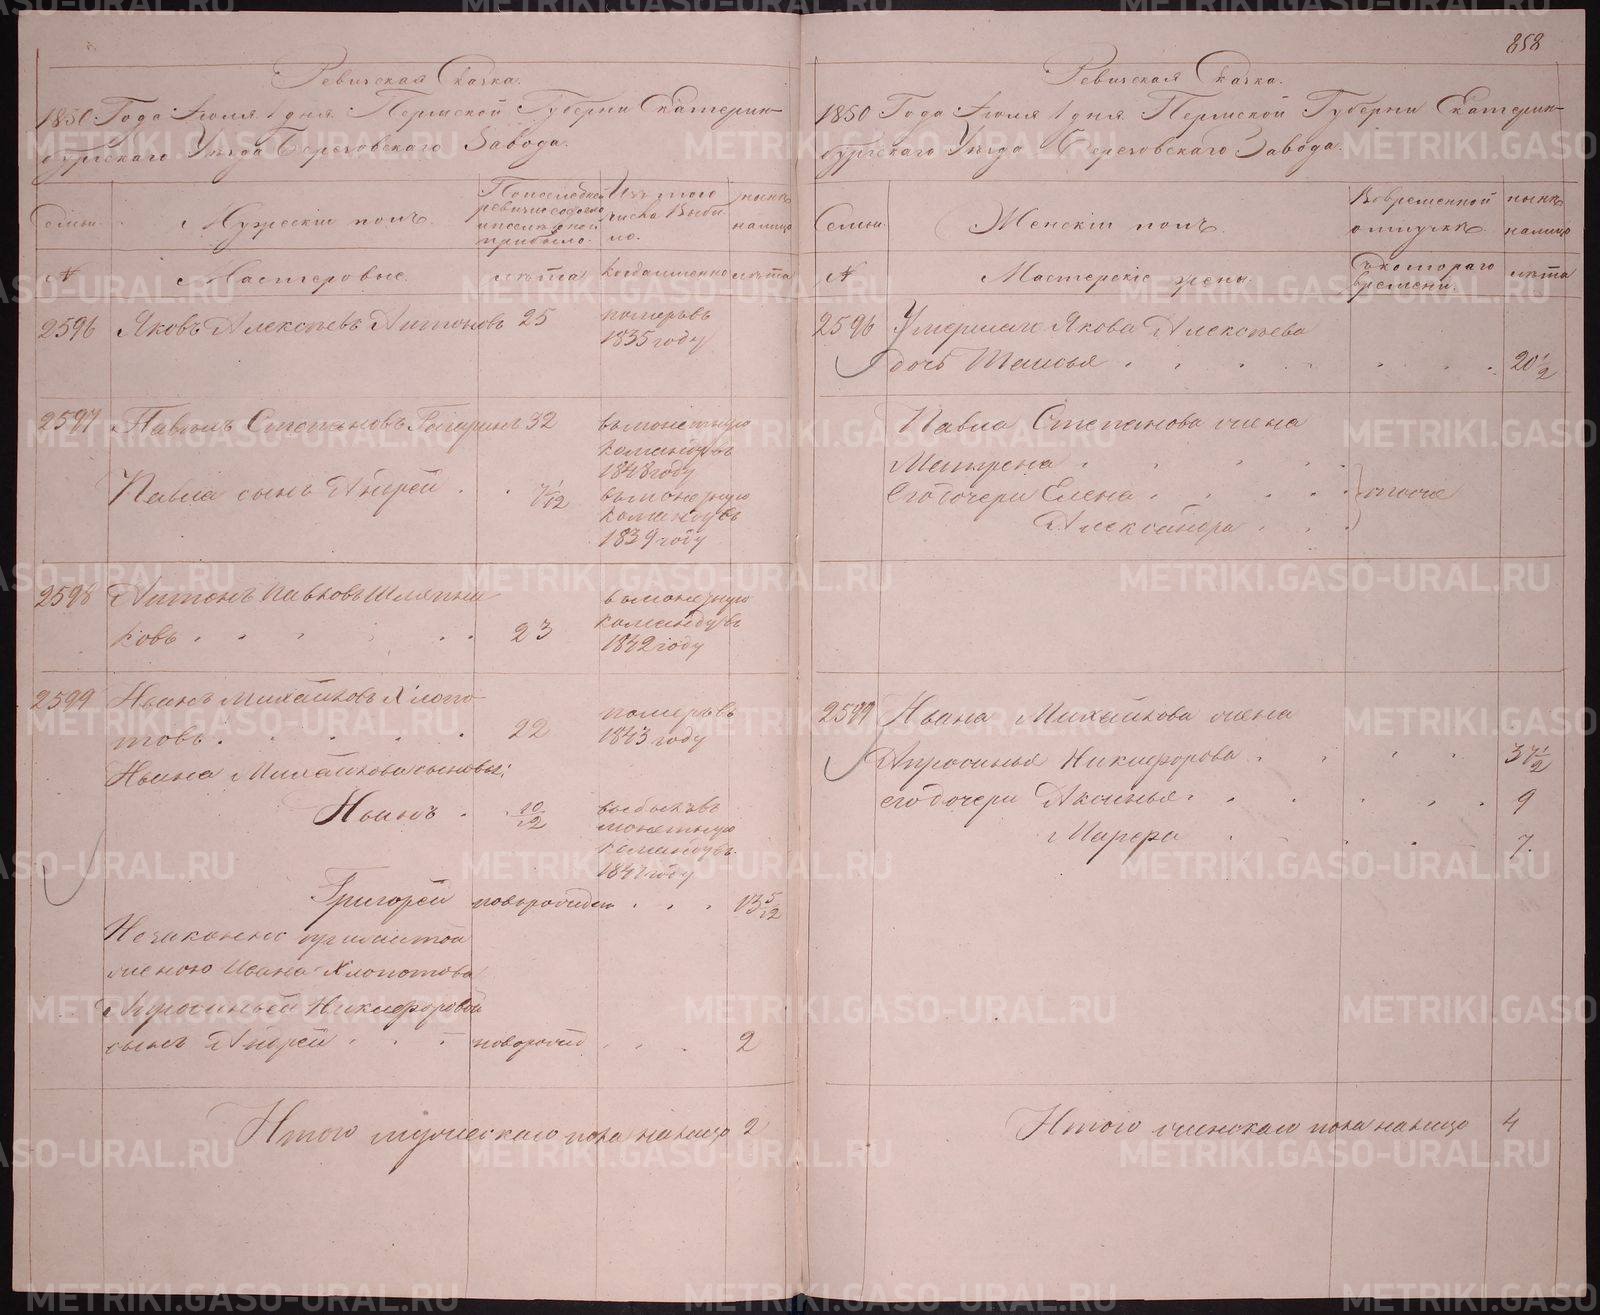 858
Ревижская Скаска.
1850 Года Июля 1 дня Пермской Губерни Екатерин-
бургскаго Уезда Березовскаго Завода.
Семьи.
Мужескій полъ.
Изъ того числа выбы-
ло.
ныне
налицо
№
Мастеровые.
лѣта
Когда именно
лѣта
2596 Яковъ Алексѣевъ Антоновъ 25
померъ въ
1835 году
2597 Павелъ Степановъ 32
въ монетную
команду въ
1848 году
Павла сынъ Андрей . . 7/12
въ монетную
команду въ
1839 году
2598 Антонъ Шляпни
ковъ . . . . . 23
въ монетную
команду въ
1842 году
2599 Иванъ Михайловъ Хлопо-
товъ . . . . . 22
померъ въ
1843 году
Ивана Михайлова сыновья;
Иванъ . 10/12
монетную
команду въ
1847 году
Григорей новорожден . . . 13 5/12
Незаконно прижитой
женою Ивана Хлопотова
Апросиньей Никифоровой
сынъ Андрей . . . новорожд . . . 2
Итого мужескаго пола налицо 2
Ревижская Скаска.
1850 Года Июля 1 дня Пермской Губерни Екатерин-
бургскаго Уезда Березовскаго Завода.
Семьи.
Женскій полъ.
Во временной
отлучкѣ
ныне
налицо
№
Мастерскіе жены.
съ котораго
времени.
лѣта
2596 Умершаго Якова Алексѣева
дочь Таисья . . . . . . . 20 1/2
Павла Степанова жена
Матрена . . . .
Его дочери Елена . . . . .
Александра . . . .
тоже
2599 Ивана Михайлова жена
Апросинья Никифорова . . . . 37 1/2
его дочери Аксинья . . . . . . 9
Марфа . . . . 7.
Итого женскаго пола налицо 4
METRIKI.GASO-URAL.RU